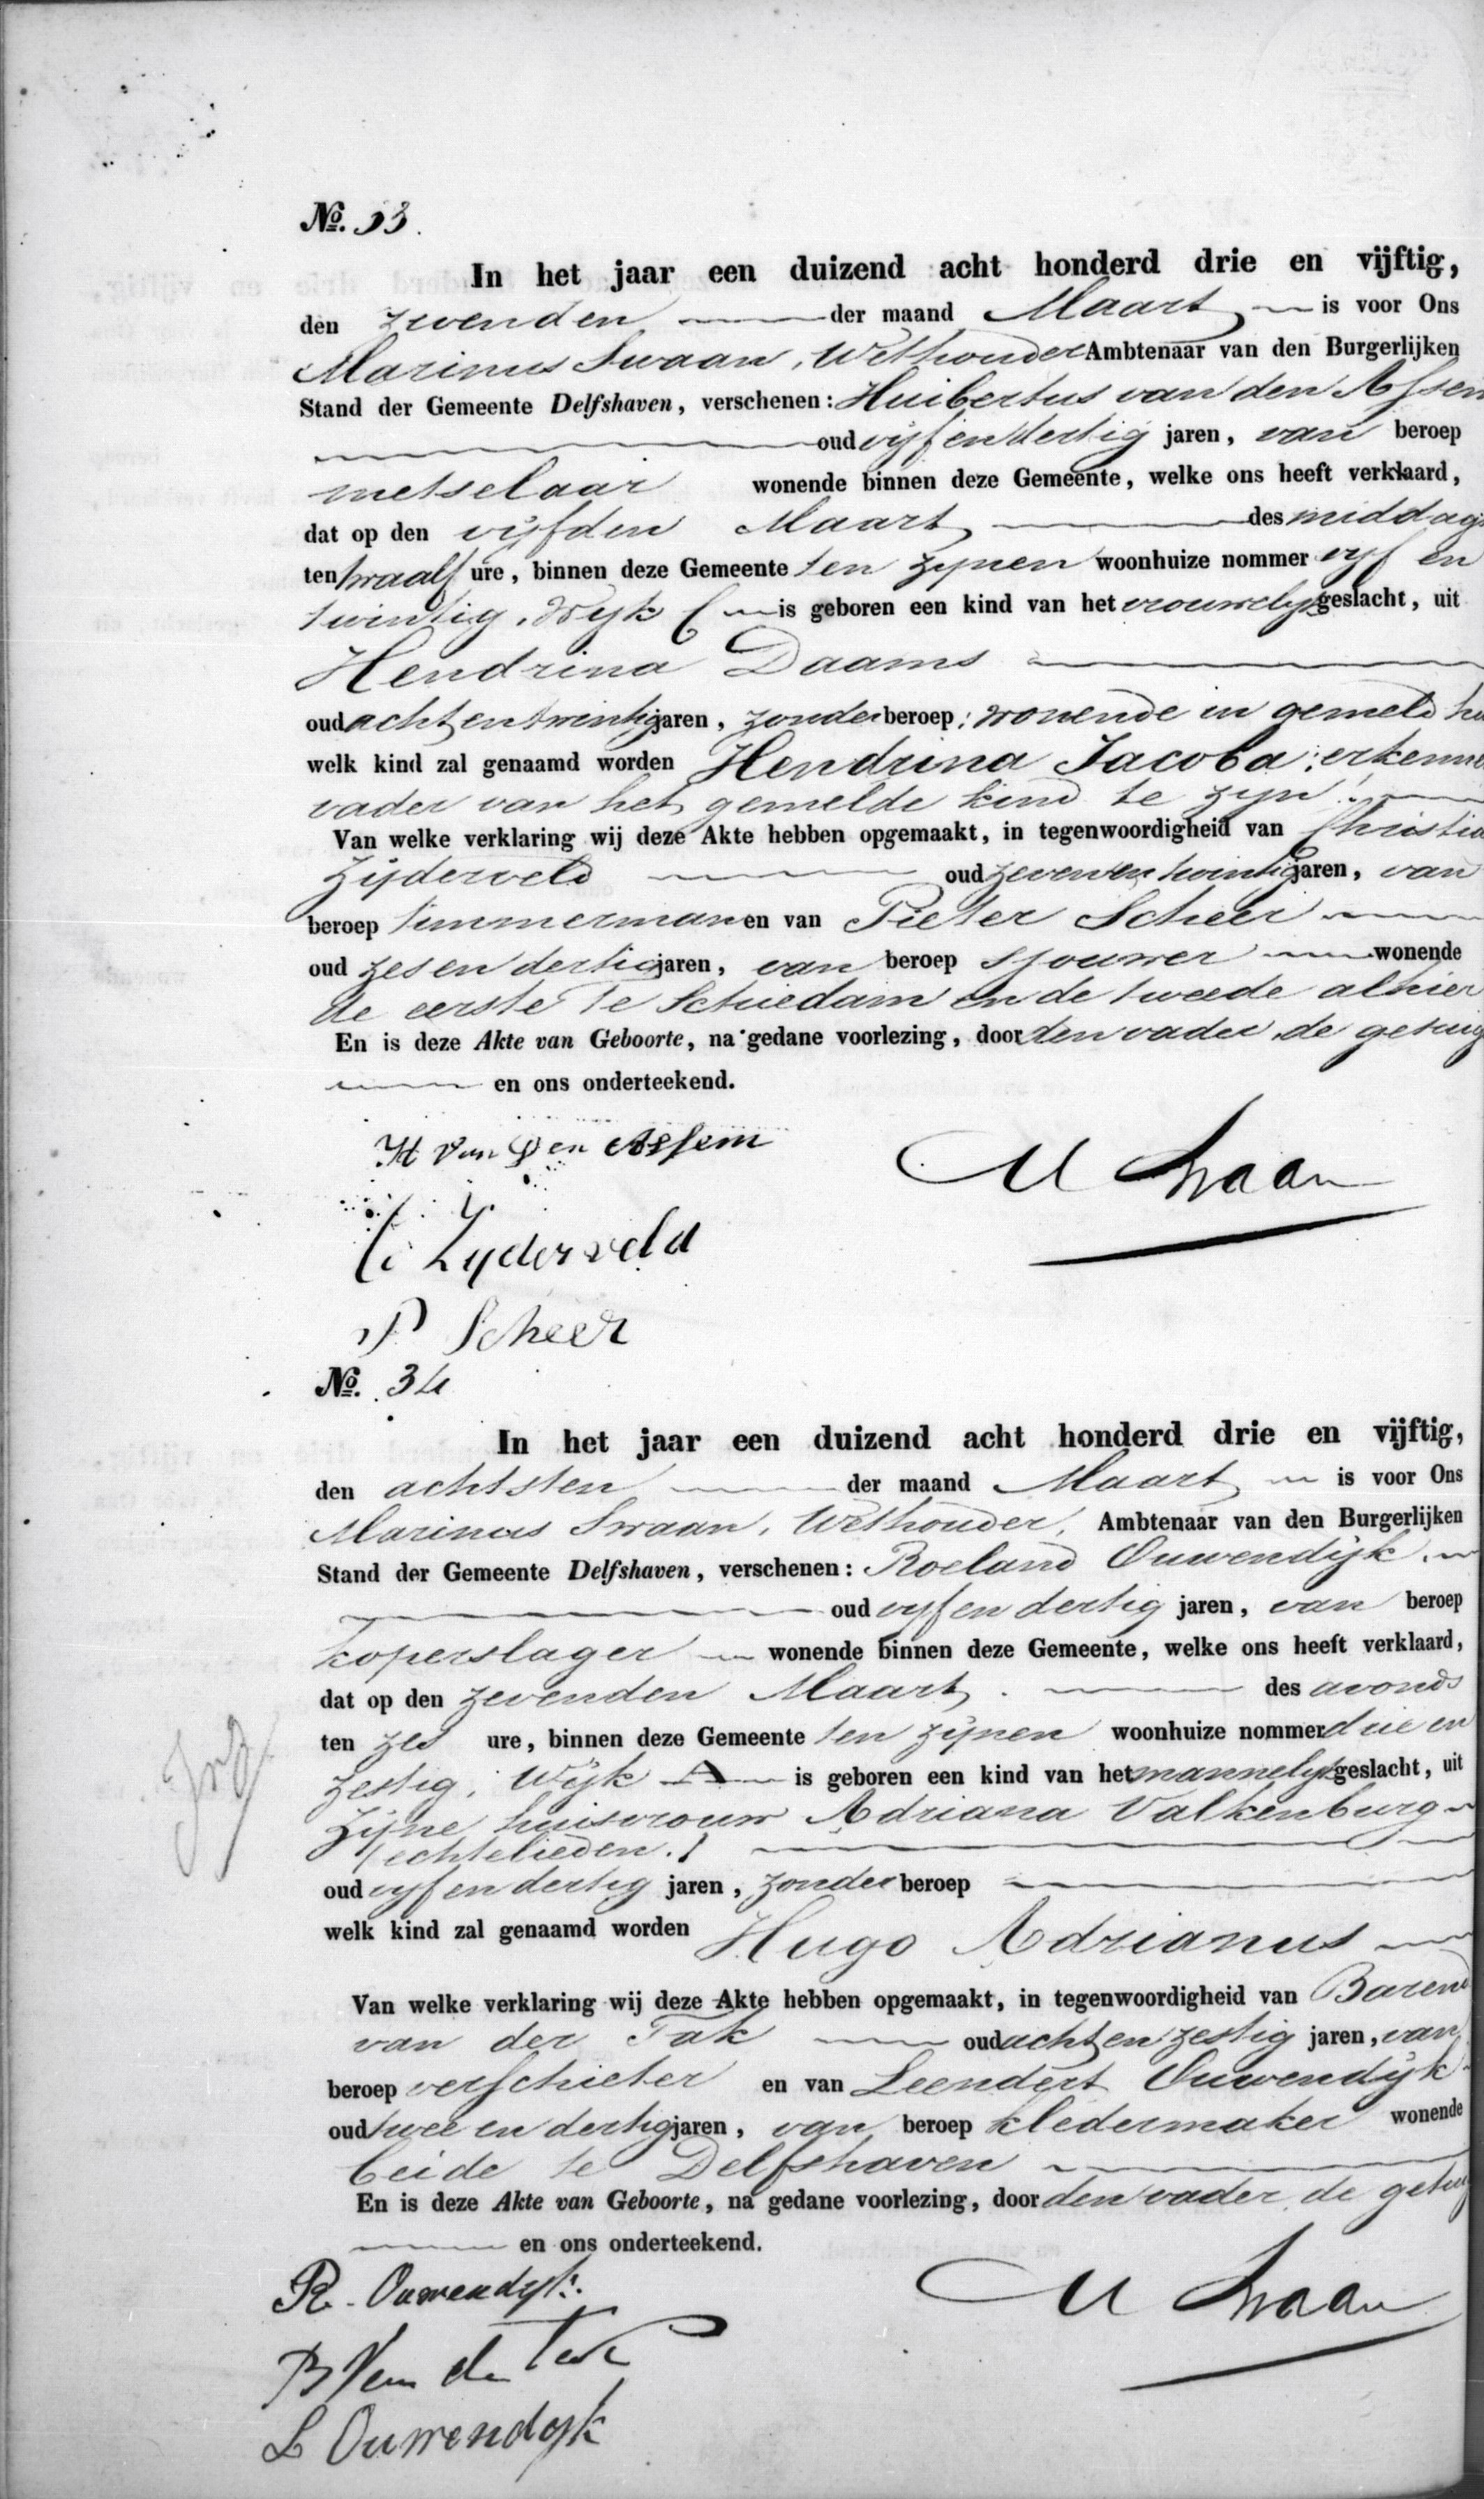 No. 33.
In het jaar een duizend acht honderd drie en vijftig,
den zevenden der maand Maart is voor Ons
Marinus Swaan, Wethouder Ambtenaar van den Burgerlijken
Stand der Gemeente Delfshaven, verschenen: Huibertus van den Assem
oud vyf en dertig jaren, van beroep
metselaar wonende binnen deze Gemeente, welke ons heeft verklaard,
dat op den vyfden Maart des middags
ten twaalf ure, binnen deze Gemeente ten zynen woonhuize nommer vyf en
twintig, Wyk C is geboren een kind van het vrouwelyk geslacht, uit
Hendrina Daams
oud acht en twintig jaren, zonder beroep; wonende in gemeld
welk kind zal genaamd worden Hendrina Jacoba; erkenne
vader van het gemelde kind te zyn.
Van welke verklaring wij deze Akte hebben opgemaakt, in tegenwoordigheid van Christia
Zyderveld oud zeven en twintig jaren, van
beroep timmerman en van Pieter Scheer
oud zes en dertig jaren, van beroep sjouwer wonende
de eerste te Schiedam en de tweede alhier
En is deze Akte van Geboorte, na gedane voorlezing, door den vader de getuig
en ons onderteekend.
H van den Assem
M Swaan
C Zyderveld
P Scheer
No. 34
In het jaar een duizend acht honderd drie en vijftig,
den achtsten der maand Maart is voor Ons
Marinus Swaan, Wethouder, Ambtenaar van den Burgerlijken
Stand der Gemeente Delfshaven, verschenen: Roeland Ouwendyk,
oud vyf en dertig jaren, van beroep
koperslager wonende binnen deze Gemeente, welke ons heeft verklaard,
dat op den zevenden Maart des avonds
ten zes ure, binnen deze Gemeente ten zynen woonhuize nommer drie en
zestig, Wyk A is geboren een kind van het mannelyk geslacht, uit
zyne huisvrouw Adriana Valkenburg
(echtelieden.)
oud vyf en dertig jaren, zonder beroep
welk kind zal genaamd worden Hugo Adrianus
Van welke verklaring wij deze Akte hebben opgemaakt, in tegenwoordigheid van Barend
van der Tak oud acht en zestig jaren, van
beroep verschieter en van Leendert Ouwendyk
oud twee en dertig jaren, van beroep kledermaker wonende
beide te Delfshaven
En is deze Akte van Geboorte, na gedane voorlezing, door den vader, de getuig
en ons onderteekend.
R. Ouwendyk.
M Swaan
B Van der Tak
L Ouwendyk